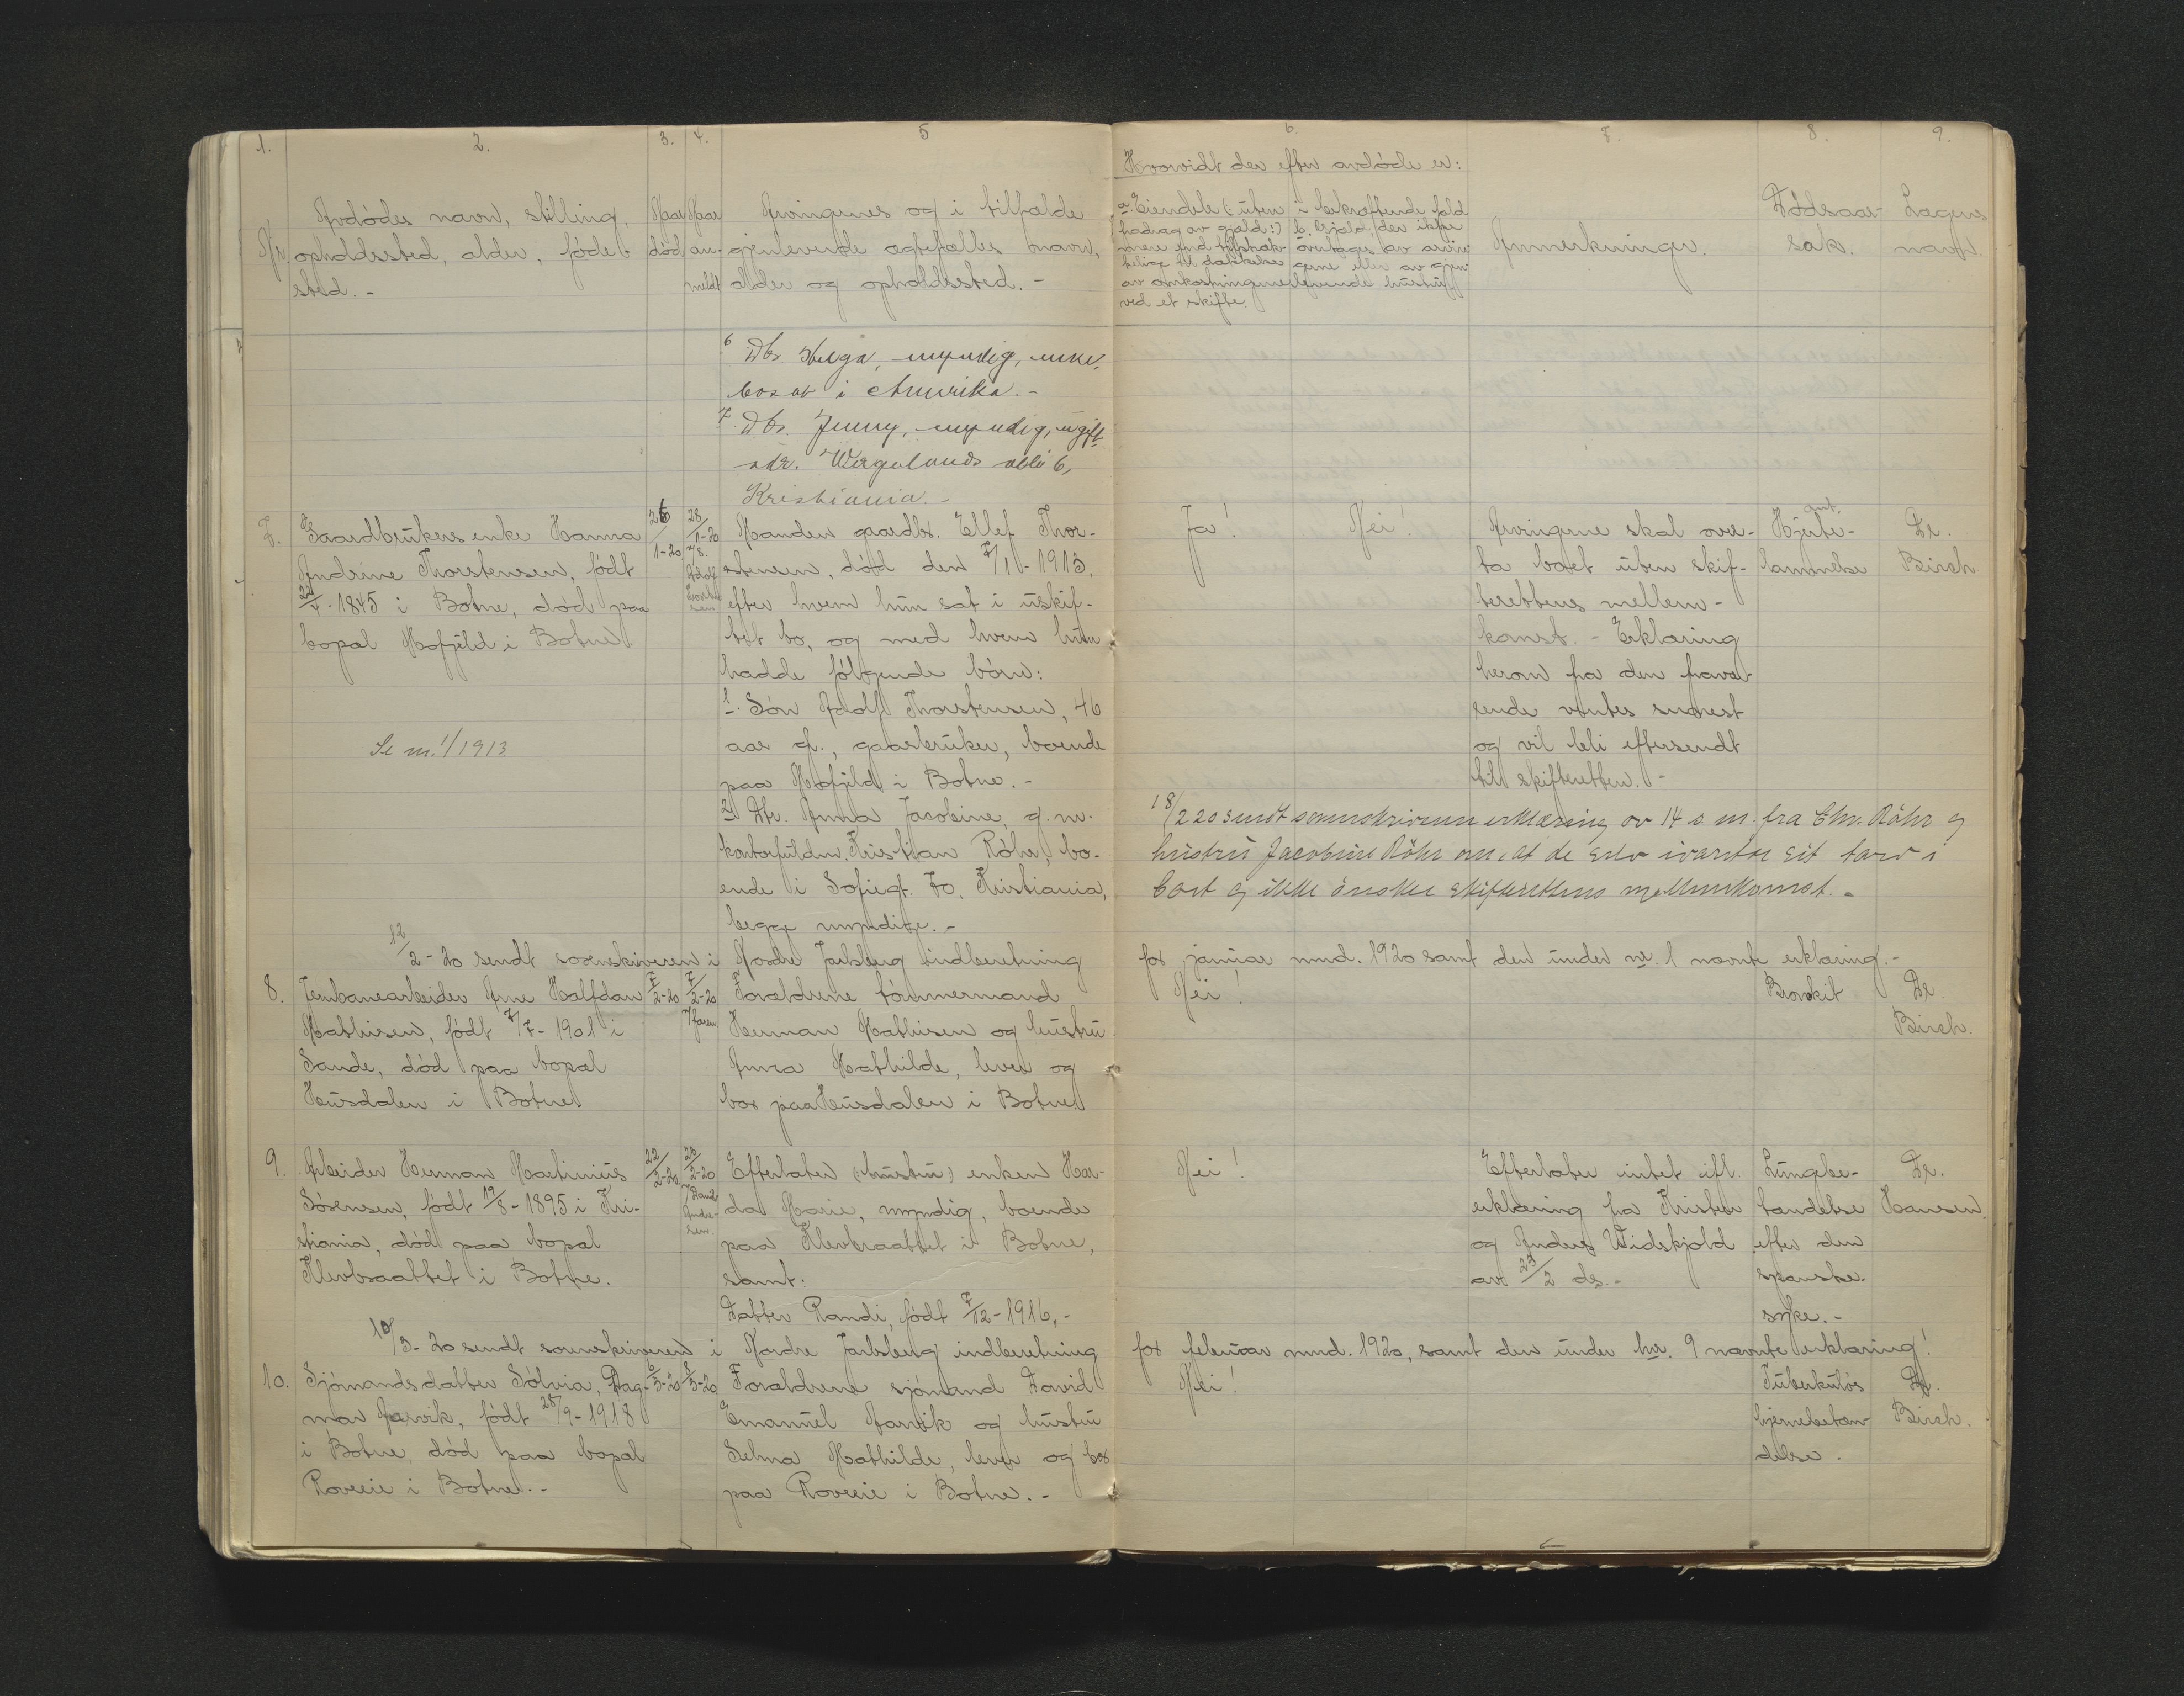 1. 2. 3. 4. 5 6. 7. 8. 9.
Hvorvidt der efter avdöde er:
Nr.
Avdödes navn, stilling,
opholdssted, alder, föde-
sted. -
Naar
död
Naar
an-
meldt
Arvingernes og i tilfælde
gjenlevende ægtefælles navn,
alder og opholdssted. -
a Eiendele (: uten
fradrag av gjæld:)
mere end tilstræk-
kelige til dækkelse
av omkostningerne
ved et skifte.
i bekræftende fald
b. Gjæld, den ikke
overtages av arvin-
gerne eller av gjen-
levende hustru
Anmerkninger.
Dödsaar-
sak.
Lægens
navn.
6 Dtr. Helga, myndig, enke,
bosat i Amerika. -
7. Dtr. Jenny, myndig, ugift
adr. Wergelands allé 6,
Kristiania. -
7.
Gaardbrukerenke Hanna
Andrine Thorstensen, födt
22/4 - 1845 i Botne, död paa
bopæl Kofjeld i Botne
Se nr. 1/1913
26/1-20
28/1-20
Adolf
Manden gaardbr. Ellef Thor-
stensen, död den 7/1 - 1913,
efter hvem hun sat i uskif-
tet bo, og med hvem hun
hadde fölgende börn:
1. Sön Adolf Thorstensen, 46
aar gl., gaarbruker, boende
paa Kofjeld i Botne. -
2. Dtr. Anna Jacobine, g. m.
kontorfuldm. Kristian Röhr, bo-
ende i Sofiegt. 70, Kristiania,
begge myndige. -
Ja!
Nei!
Arvingerne skal over-
ta boet uten skif-
terettens mellem-
komst. - Erklæring
herom fra den fravæ-
rende ventes snarest
og vil bli eftersendt
til skifteretten. -
Hjerte-
lammelse
Dr.
Birch
18/2 20 sendt sorenskriveren erklæring av 14 d. m. fra Chr. Röhr og
hustru Jacobine Röhr om, at de selv ivaretar sit tarv i
boet og ikke önsker skifterettens mellemkomst. -
12/2 - 20 sendt sorenskriveren i Nordre Jarlsberg indberetning for januar mnd. 1920 samt den under nr. 1 nævnte erklæring. -
8.
Jernbanearbeider Arne Halfdan
Mathisen, födt 7/7 - 1901 i
Sande, död paa bopæl
Husdalen i Botne
7/2-20
7/2-20
Forældrene tömmermand
Herman Mathisen og hustru
Anna Mathilde, lever og
bor paa Husdalen i Botne
Nei!
Bronkit
Dr.
Birch.
9.
Arbeider Herman Martinius
Sörensen, födt 19/8 - 1895 i Kri-
stiania, död paa bopæl
Klevbraattet i Botne.
22/2-20
Efterlater (: hustru) enken Har-
da Marie, myndig, boende
paa Klevbraattet i Botne,
samt:
Datter Randi, födt 7/12 - 1916, -
Nei!
Efterlater intet ifl.
erklæring fra Kristian
og Anders Widskjold
av 23/2 ds. -
Lungebe-
tændelse
efter den
spanske
syke. -
Dr.
Hansen.
10/3 - 20 sendt sorenskriveren i Nordre Jarlsberg indberetning for februar mnd. 1920, samt den under nr. 9 nævnte erklæring!
10.
Sjömandsdatter Sölvia, Dag-
mar Aarvik, födt 28/9 - 1918
i Botne, död paa bopæl
Roveie i Botne. -
Forældrene sjömand David
Emanuel Aarvik og hustru
Selma Mathilde, lever og bor
paa Roveie i Botne. -
Nei!
Tuberkulös
hjernebetæn-
delse.
Dr.
Birch.